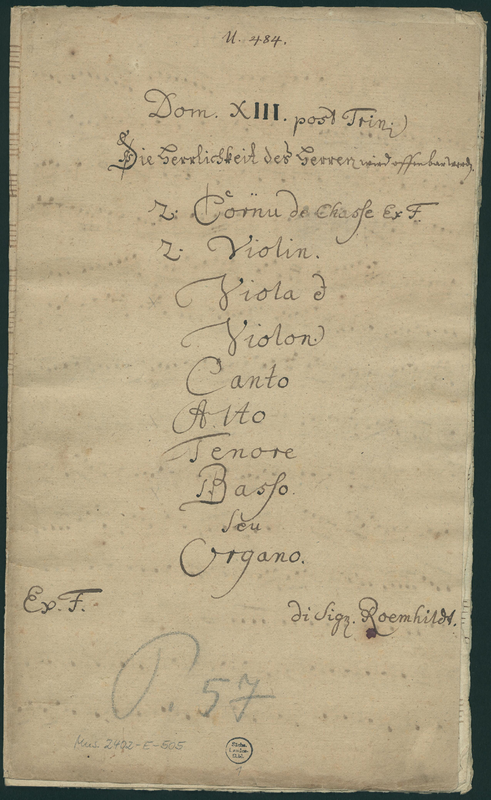 U. 484.
Dom. XIII. post Trin
Die Herrlichkeit des Herren wird offenbar werd.
2. Cornu de Chasse Ex F.
2. Violin.
Viola è
Violon
Canto
Alto
Tenore
Basso.
seu
Organo.
Ex. F.
di Sigr. Roemhildt.
P. 57
Mus. 2492-E-505
Sächs.
Landes-
Bibl.